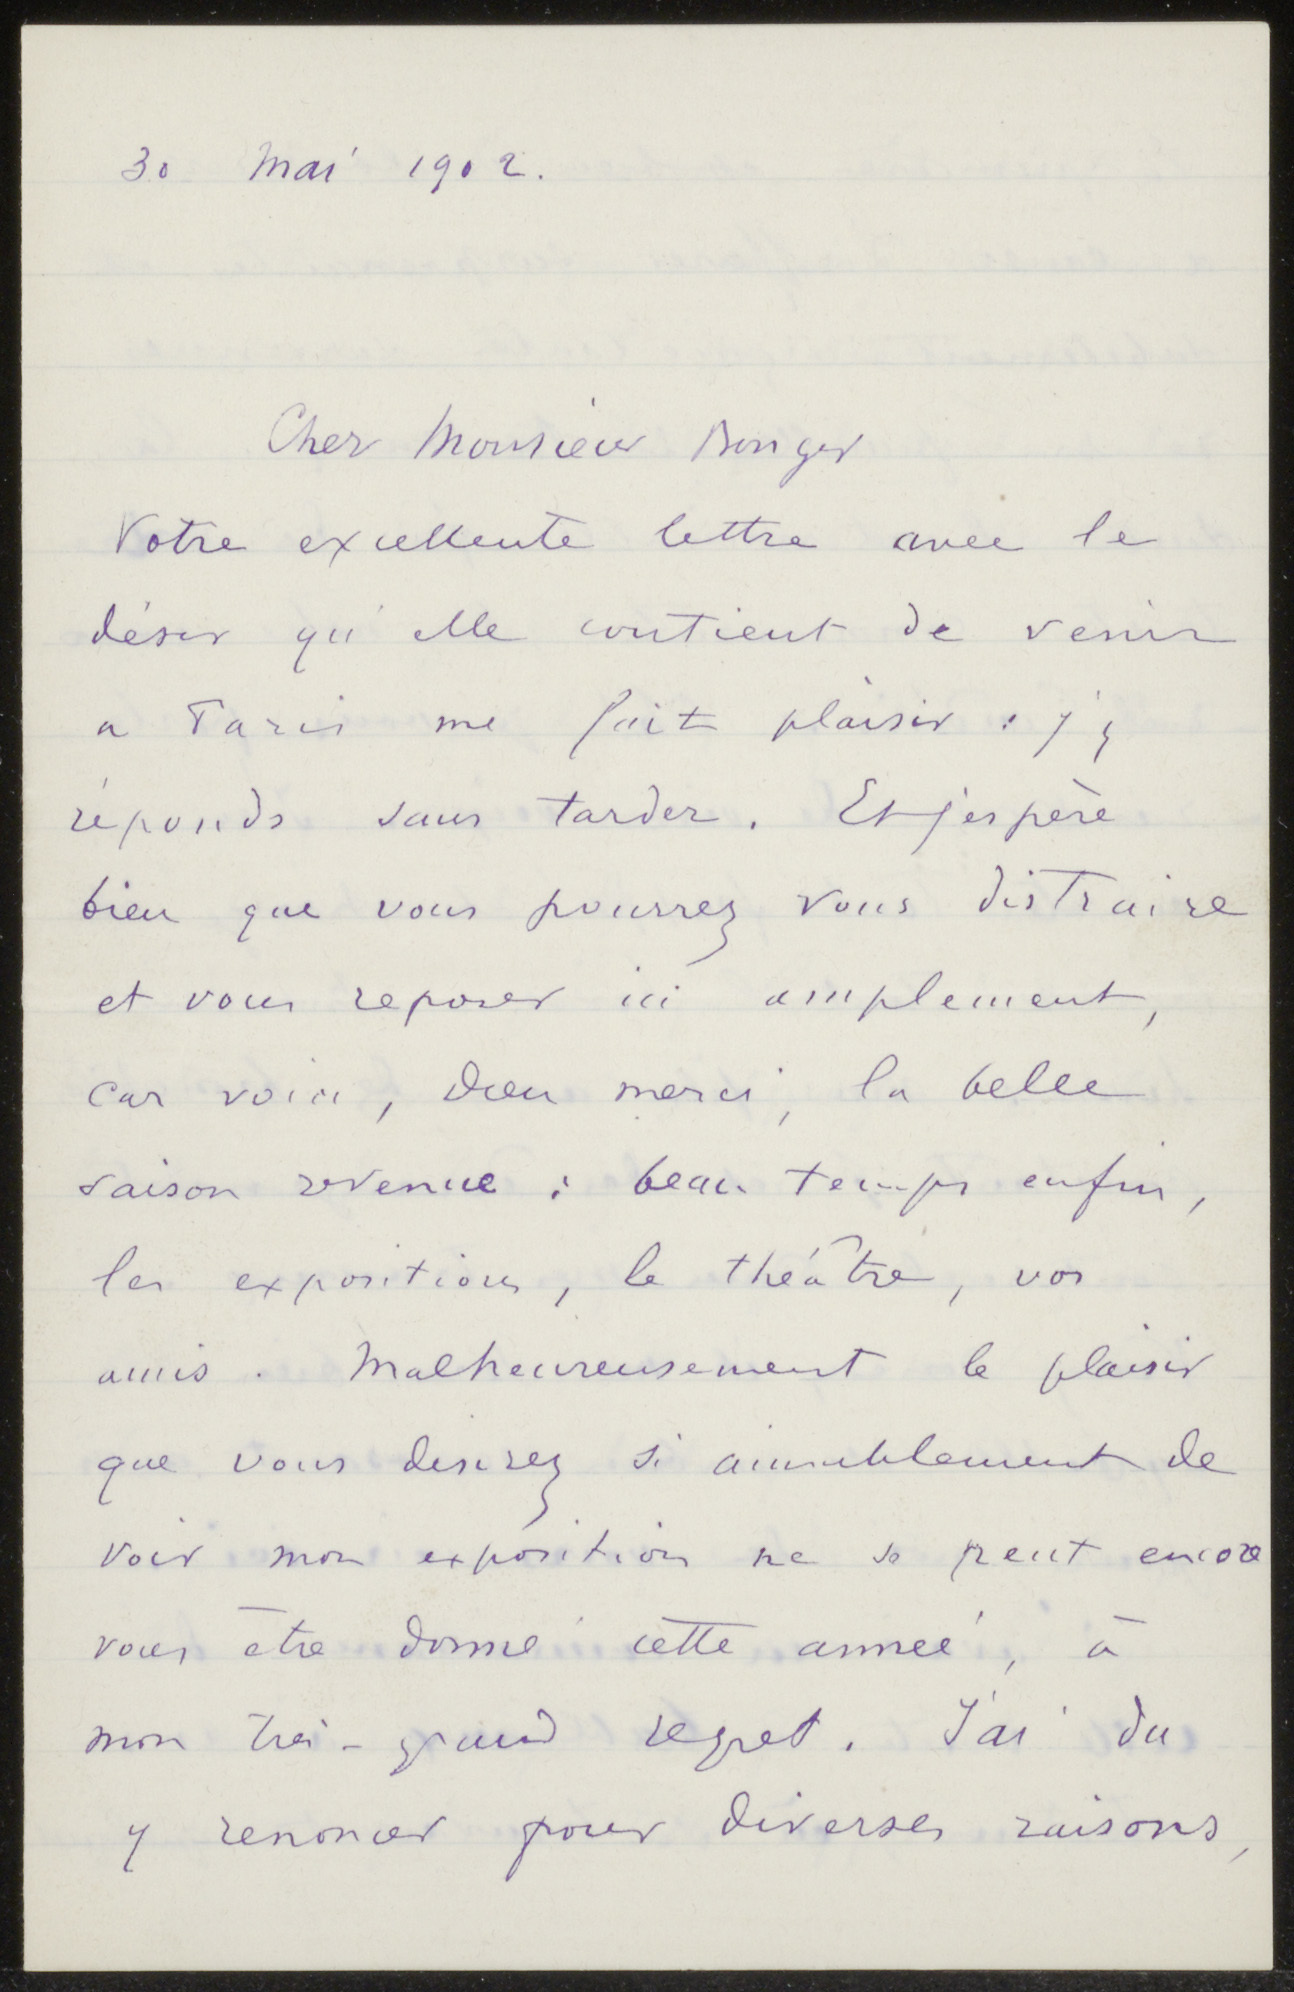 30 Mai 1902.
Cher Monsieur Bonger
Votre excellente lettre avec le
désir qu'elle contient de venir
a Paris me fait plaisir : j'y
réponds sans tarder. Et j'espère
bien que vous pourrez vous distraire
et vous reposer ici amplement,
car voici, Dieu merci, la belle
saison revenue : beau temps enfin,
les expositions, le théâtre, vos
amis. Malheureusement le plaisir
que vous desirez si aimablement de
voir mon exposition ne se peut encore
vous être donné cette année, à
mon très-grand regret. J'ai du
y renoncer pour diverses raisons,